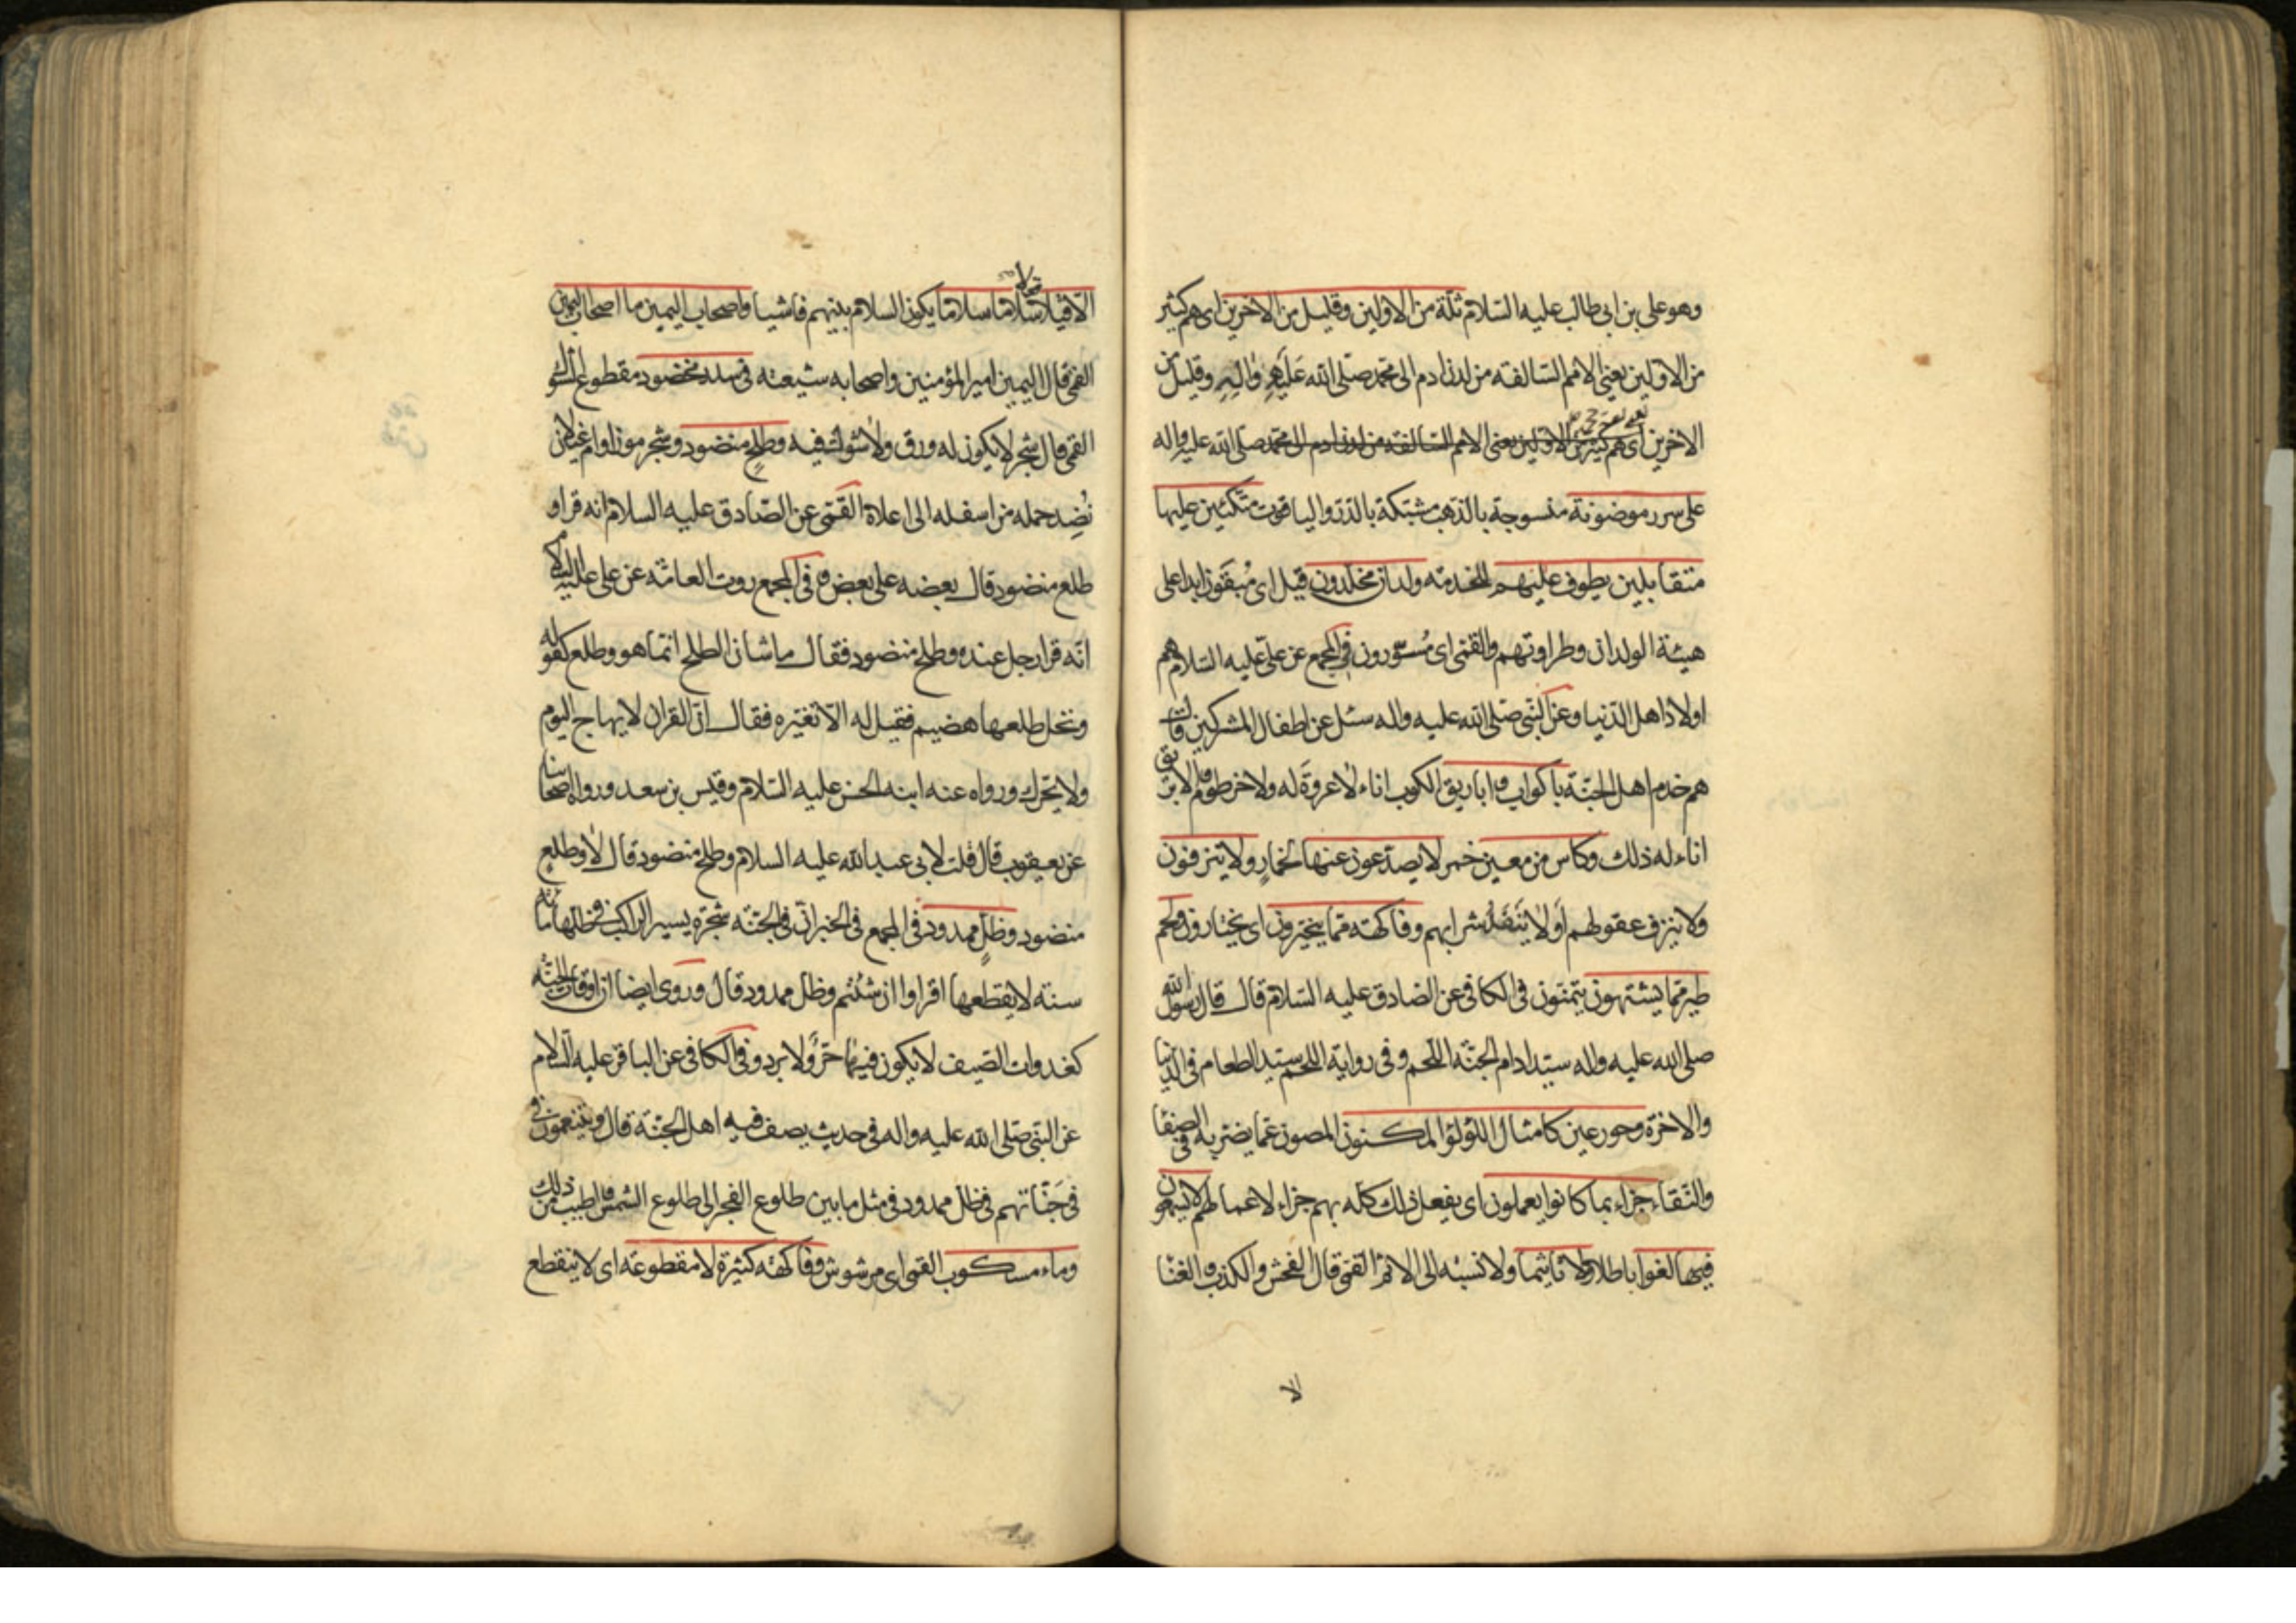 وهو علي بن ابي طالب عليه السلام ثلة من الاولين وقليل من الاخرين اى هم كثير
من الاولين يعنى الامم السالفة من لدن ادم الى محمد صلى الله عليهم واليه وقليل من
الاخرين اى هم كثير من الاولين يعنى الامم السالفة من لدن ادم الى محمد صلى الله عليه واله
على سرر موضونة منسوجة بالذهب مشبكة بالدر والياقوت متكئين عليها
متقابلين يطوف عليهم للخدمة ولدان مخلدون قيل اى مُبقَون ابدا على
هيئة الولدان وطراوتهم والقمى اى مُسَوَّرون فى المجمع عن على عليه السلام هم
اولاد اهل الدنيا وعن النبى صلى الله عليه واله سئل عن اطفال المشركين قال
هم خدم اهل الجنة باكواب واباريق الكوب اناء لا عروة له ولا خرطوم والابريق
اناء له ذلك وكاس من معين خمر لا يصدعون عنها لخمارٍ ولا ينزفون
ولا ينزف عقولهم اَو لا يَنفَدُ شرابهم وفاكهة مما يتخيرون اى يختارون ولحم
طير مما يشتهون يتمنون فى الكافى عن الصادق عليه السلام قال قال رسول الله
صلى الله عليه واله سيد ادام الجنة اللحم وفى رواية اللحم سيد الطعام فى الدنيا
والاخرة وحور عين كامثال اللؤلؤ المكنون المصون عما يضر به فى الصفا
والنقاء جزاء بما كانوا يعملون اى يفعل ذلك كله بهم جزاء لاعمالهم لا يسمعون
فيها لغوا باطلا ولا تاثيما ولا نسبة الى الاثم القمى قال الفحش والكذب والغنا
الا
الا قيلا سلاما سلاما يكون السلام بينهم فاشيا واصحاب اليمين ما اصحاب اليمين
القمى قال اليمين امير المؤمنين واصحابه شيعته فى سدر مخضود مقطوع الشوك
القمى قال شجر لا يكون له ورق ولا شوك فيه وطلحٍ منضود وشجر موز او ام غيلان
نُضِد حمله من اسفله الى اعلاه القمى عن الصادق عليه السلام انه قرا و
طلع منضود قال بعضه على بعض وفى المجمع روت العامة عن على عليه السلام
انه قرا رجل عنده وطلح منضود فقال ما شان الطلح انما هو وطلع كقوله
ونخل طلعها هضيم فقيل له الا تغيره فقال ان القران لا يهاج اليوم
ولا يحرك ورواه عنه ابنه الحسن عليه السلام وقيس بن سعد ورواه اصحابنا
عن يعقوب قال قلت لابى عبد الله عليه السلام وطلح منضود قال لا وطلعٍ
منضود وظلٍ ممدود فى المجمع فى الخبر ان فى الجنة شجرة يسير الراكب فى ظلها مائة
سنة لا يقطعها اقراوا ان شئتم وظل ممدود قال وروى ايضا ان اوقات الجنة
كغدوات الصيف لا يكون فيها حرٌّ ولا برد وفى الكافى عن الباقر عليه السلام
عن النبى صلى الله عليه واله فى حديث يصف فيه اهل الجنة قال ويتنعمون فى
فى جَنّاتهم فى ظل ممدود فى مثل ما بين طلوع الفجر الى طلوع الشمس واطيب من ذلك
وماء مسكوب القمى اى مرشوش وفاكهة كثيرة لا مقطوعة اى لا ينقطع